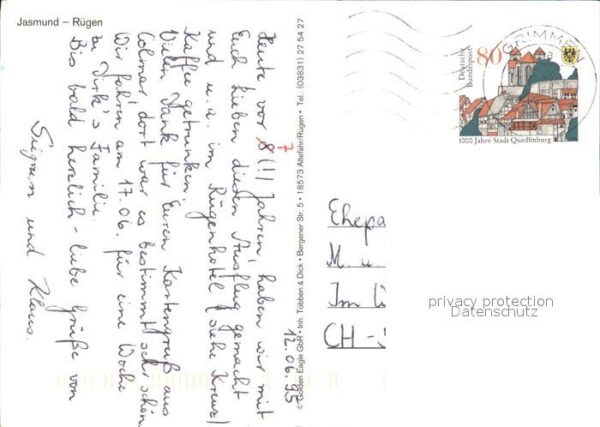 Jasmund – Rügen
12.06.95
Heute vor 8 (!) Jahren, haben wir mit
7
Euch Lieben diesen Ausflug gemacht
und u.a. im Rügenhotel (siehe Kreuz)
Kaffee getrunken.
Vielen Dank für Euren Kartengruß aus
Colmar, dort war es bestimmt sehr schön.
Wir fahren am 17.06. für eine Woche
zu Dirk's Familie.
Bis bald herzlich - liebe Grüße von
Sigrun und Klaus.
© Golden Eagle GbR • Inh. Tobben & Dick • Bergener Str. 5 • 18573 Altefähr/Rügen • Tel. (03831) 27 54 27
GRIMMEN
a
Deutsche
Bundespost
80
1000 Jahre Stadt Quedlinburg
Ehepa
M. u
Im
CH -
privacy protection
Datenschutz